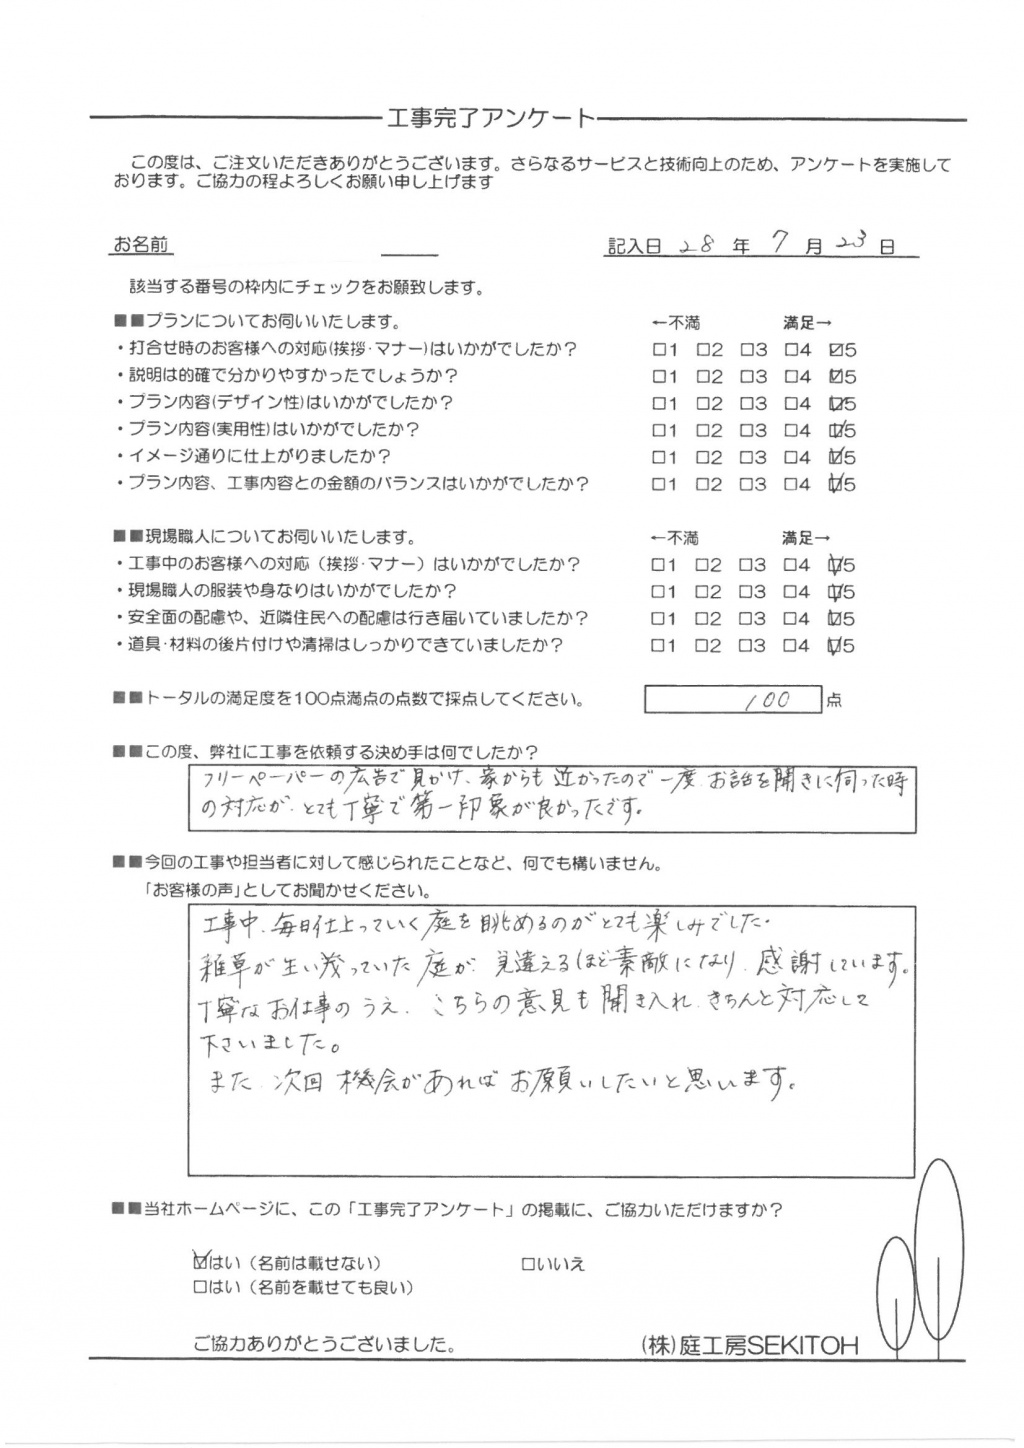 工事完了アンケート
この度は、ご注文いただきありがとうございます。さらなるサービスと技術向上のため、アンケートを実施して
おります。ご協力の程よろしくお願い申し上げます
お名前 記入日 28 年 7 月 23 日
該当する番号の枠内にチェックをお願致します。
■■プランについてお伺いいたします。 ←不満 満足→
・打合せ時のお客様への対応(挨拶・マナー)はいかがでしたか？ □1 □2 □3 □4 ☑5
・説明は的確で分かりやすかったでしょうか？ □1 □2 □3 □4 ☑5
・プラン内容(デザイン性)はいかがでしたか？ □1 □2 □3 □4 ☑5
・プラン内容(実用性)はいかがでしたか？ □1 □2 □3 □4 ☑5
・イメージ通りに仕上がりましたか？ □1 □2 □3 □4 ☑5
・プラン内容、工事内容との金額のバランスはいかがでしたか？ □1 □2 □3 □4 ☑5
■■現場職人についてお伺いいたします。 ←不満 満足→
・工事中のお客様への対応（挨拶・マナー）はいかがでしたか？ □1 □2 □3 □4 ☑5
・現場職人の服装や身なりはいかがでしたか？ □1 □2 □3 □4 ☑5
・安全面の配慮や、近隣住民への配慮は行き届いていましたか？ □1 □2 □3 □4 ☑5
・道具・材料の後片付けや清掃はしっかりできていましたか？ □1 □2 □3 □4 ☑5
■■トータルの満足度を100点満点の点数で採点してください。 100 点
■■この度、弊社に工事を依頼する決め手は何でしたか？
フリーペーパーの広告で見かけ、家からも近かったので一度、お話を聞きに伺った時
の対応が、とても丁寧で第一印象が良かったです。
■■今回の工事や担当者に対して感じられたことなど、何でも構いません。
「お客様の声」としてお聞かせください。
工事中、毎日仕上っていく庭を眺めるのがとても楽しみでした。
雑草が生い茂っていた庭が、見違えるほど素敵になり、感謝しています。
丁寧なお仕事のうえ、こちらの意見も聞き入れ、きちんと対応して
下さいました。
また、次回機会があればお願いしたいと思います。
■■当社ホームページに、この「工事完了アンケート」の掲載に、ご協力いただけますか？
☑はい（名前は載せない） □いいえ
□はい（名前を載せても良い）
ご協力ありがとうございました。 （株）庭工房SEKITOH